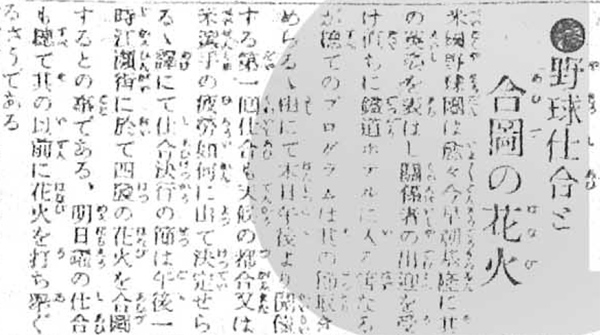 野球仕合と
合圖の花火
米國野球團は愈々今早朝基隆に其
の英姿を表はし關係者の出迎を受
け直ちに鐵道ホテルに入る筈なる
が總てのプログラムは其の節取き
めらるゝ由にて本日午後より開催
する第一回仕合も天候の都合又は
米選手の疲勞如何に由て決定せら
るゝ譯にて仕合決行の節は午後一
時 街に於て四發の花火を合圖
するとの事である、明日曜の仕合
も總て其の以前に花火を打ち揚ぐ
るさうである